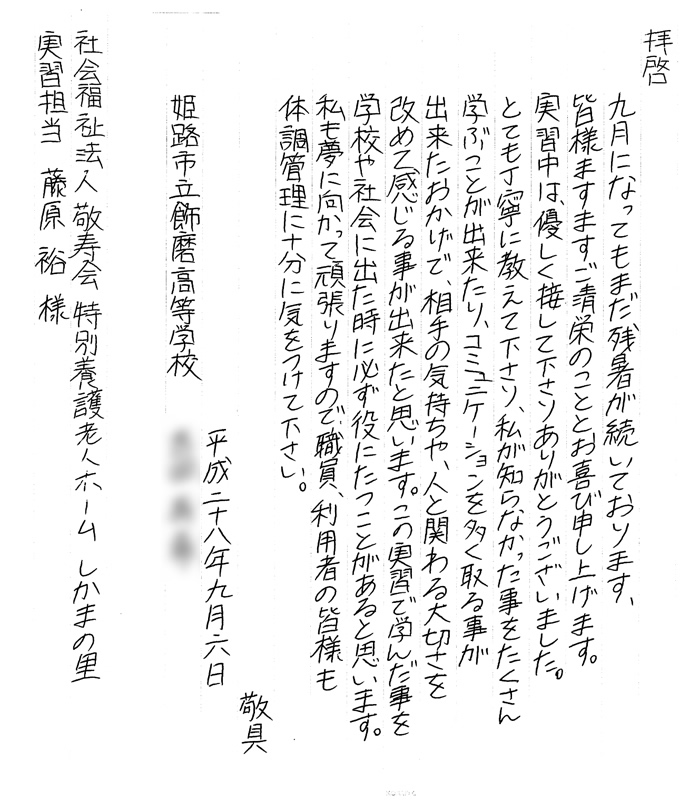 拝啓
九月になってもまだ残暑が続いております、
皆様ますますご清栄のこととお喜び申し上げます。
実習中は、優しく接して下さりありがとうございました。
とても丁寧に教えて下さり、私が知らなかった事をたくさん
学ぶことが出来たり、コミュニケーションを多く取る事が
出来たおかげで、相手の気持ちや、人と関わる大切さを
改めて感じる事が出来たと思います。この実習で学んだ事を
学校や社会に出た時に必ず役にたつことがあると思います。
私も夢に向かって頑張りますので、職員、利用者の皆様も
体調管理に十分に気をつけて下さい。
敬具
平成二十八年九月六日
姫路市立飾磨高等学校
社会福祉法人 敬寿会 特別養護老人ホーム しかまの里
実習担当 藤原 裕 様